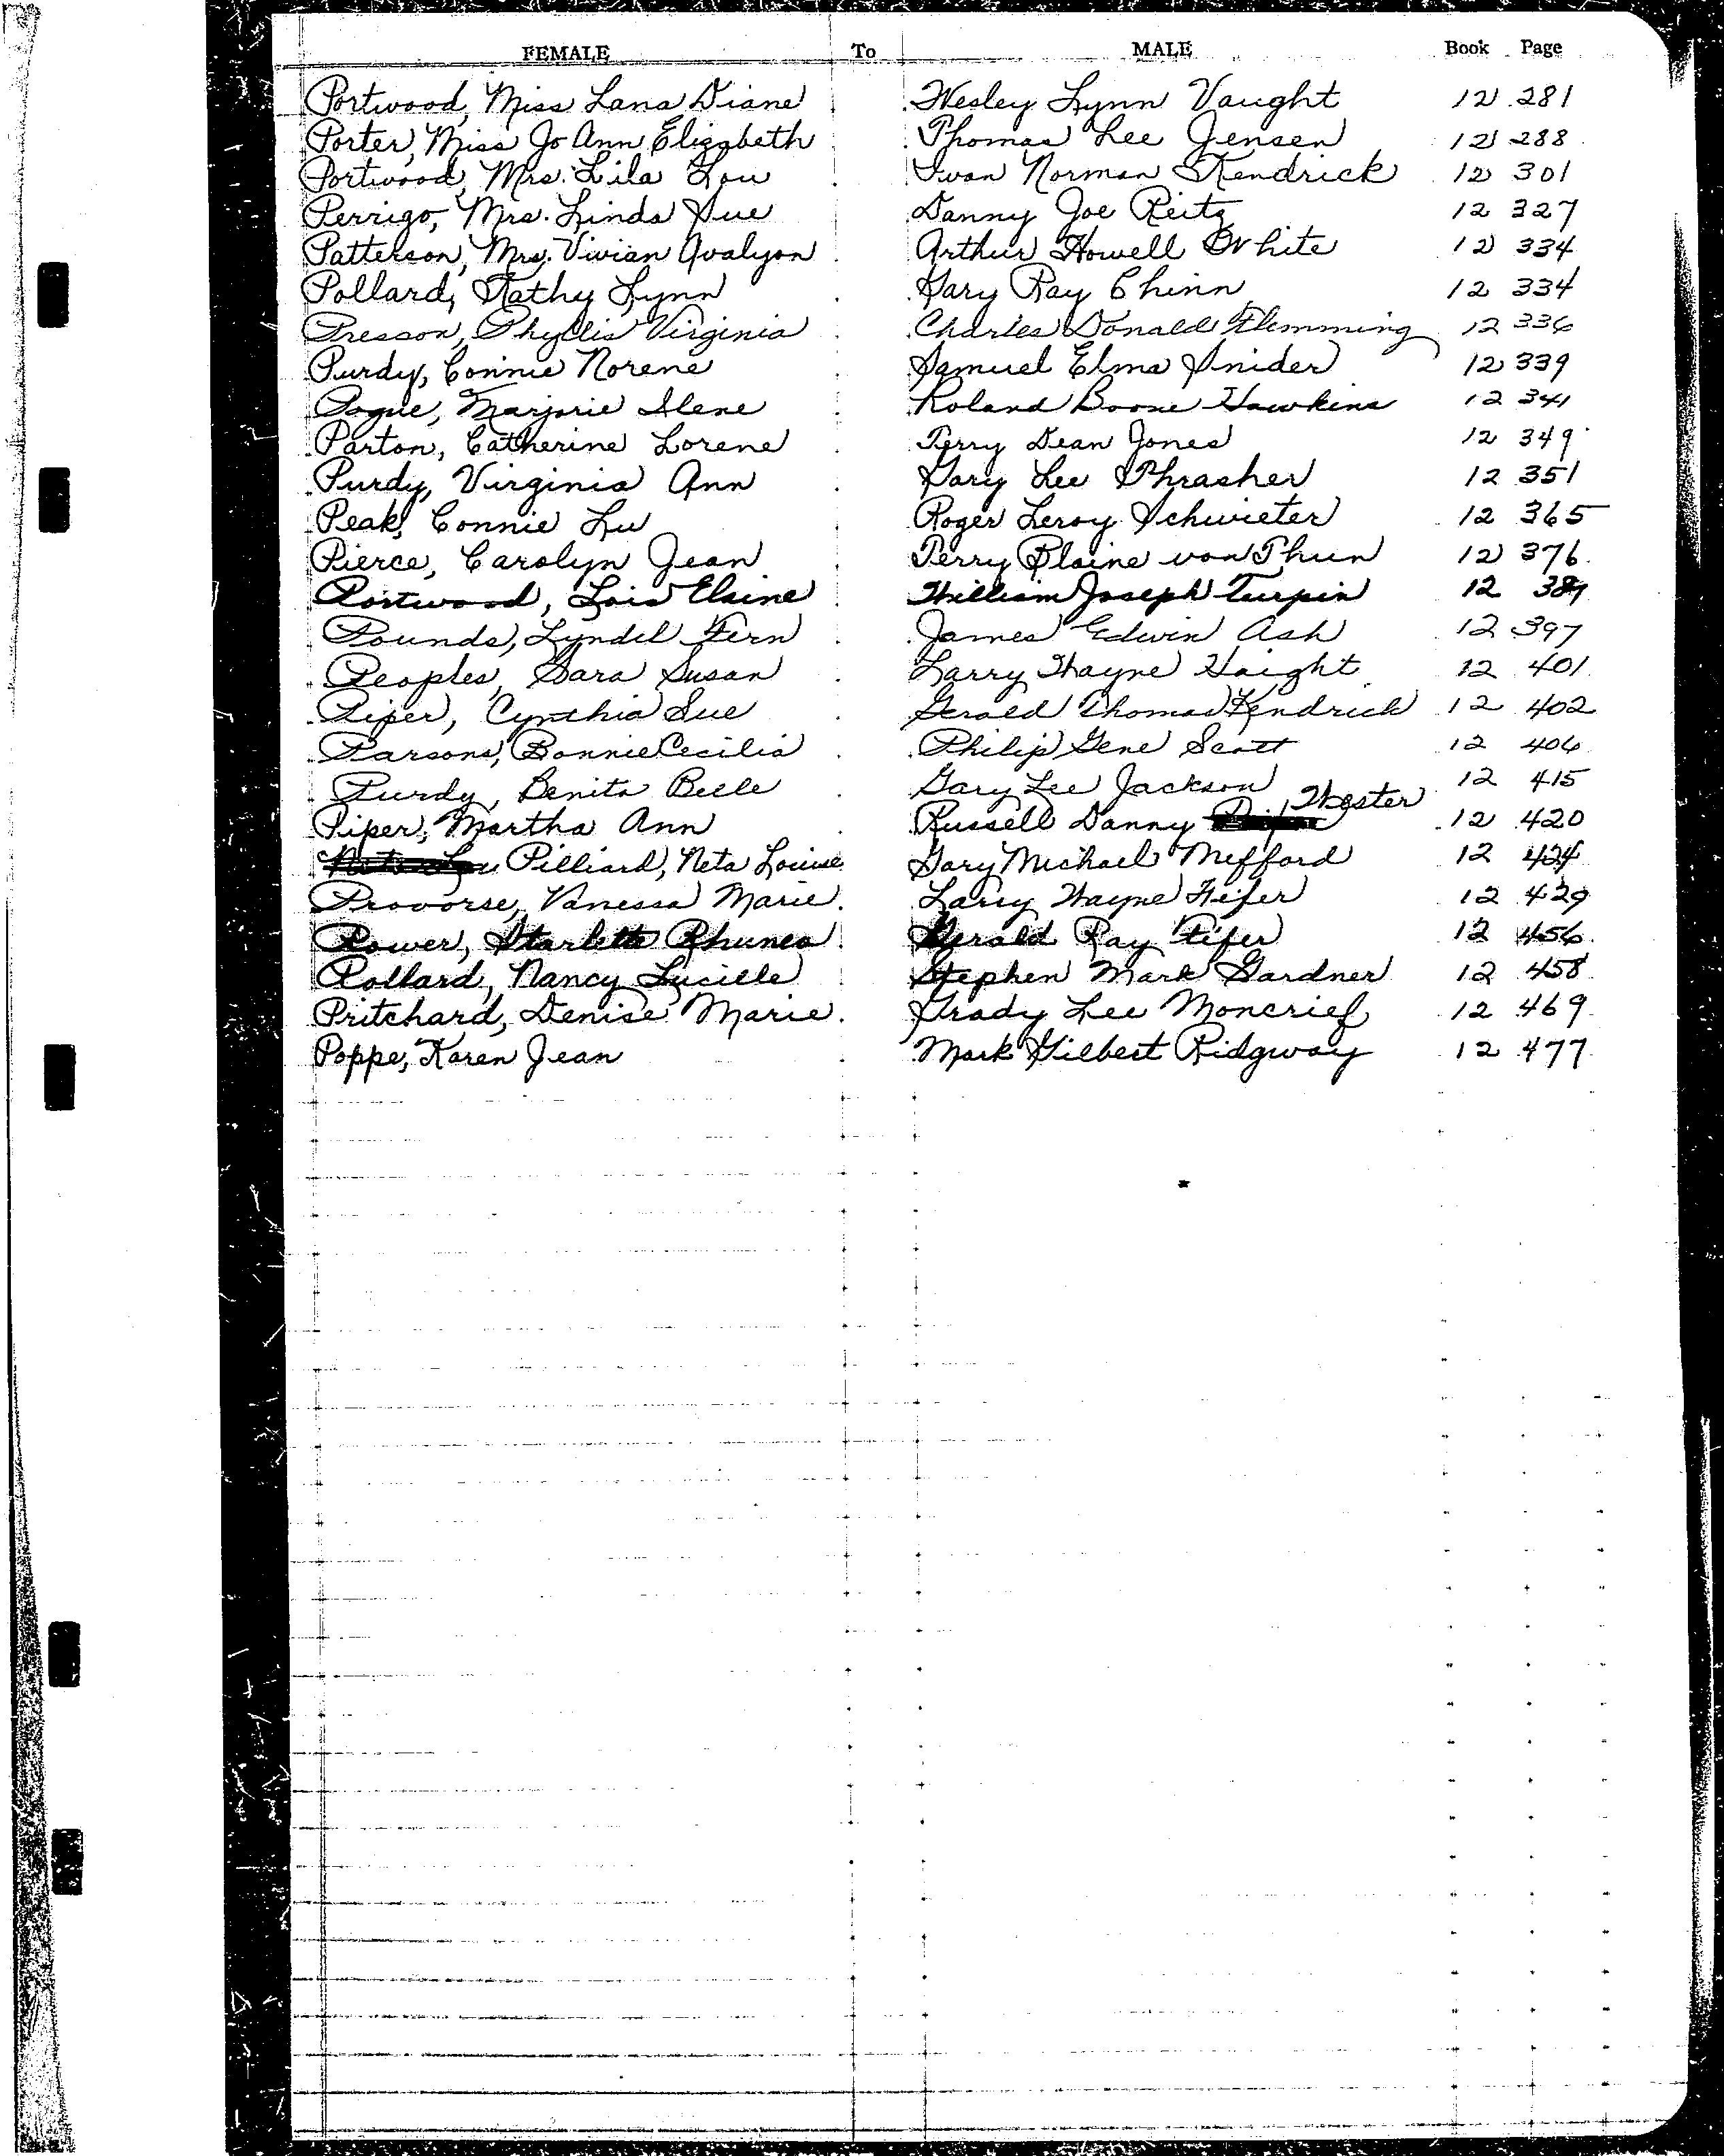 FEMALE To MALE Book Page
Portwood, Miss Lana Diane Wesley Lynn Vaught 12 281
Porter, Miss Jo Ann Elizabeth Thomas Lee Jensen 12 288
Portwood, Mrs. Lila Lou Ivan Norman Kendrick 12 301
Perrigo, Mrs. Linda Sue Danny Joe Reitz 12 327
Patterson, Mrs. Vivian Avalyon Arthur Howell White 12 334
Pollard, Kathy Lynn Gary Ray Chinn 12 334
Presson, Phyllis Virginia Charles Donald Flemming 12 336
Purdy, Connie Norene Samuel Elma Snider 12 339
Pogue, Marjorie Ilene Roland Boone Hawkins 12 341
Parton, Catherine Lorene Terry Dean Jones 12 349
Purdy, Virginia Ann Gary Lee Thrasher 12 351
Peak, Connie Lu Roger Leroy Schwieter 12 365
Pierce, Carolyn Jean Terry Blaine von Thun 12 376
Portwood, Lois Elaine William Joseph Turpin 12 389
Pounds, Lyndel Fern James Edwin Ash 12 397
Peoples, Sara Susan Larry Wayne Haight 12 401
Piper, Cynthia Sue Gerald Thomas Kendrick 12 402
Parsons, Bonnie Cecilia Philip Gene Scott 12 406
Purdy, Benita Belle Gary Lee Jackson 12 415
Piper, Martha Ann Russell Danny Wester 12 420
Pilliard, Neta Louise Gary Michael Mefford 12 424
Provorse, Vanessa Marie Larry Wayne Fifer 12 429
Power, Starlette Rhunea Gerald Ray Fifer 12 456
Pollard, Nancy Lucille Stephen Mark Gardner 12 458
Pritchard, Denise Marie Grady Lee Moncrief 12 469
Poppe, Karen Jean Mark Gilbert Ridgway 12 477